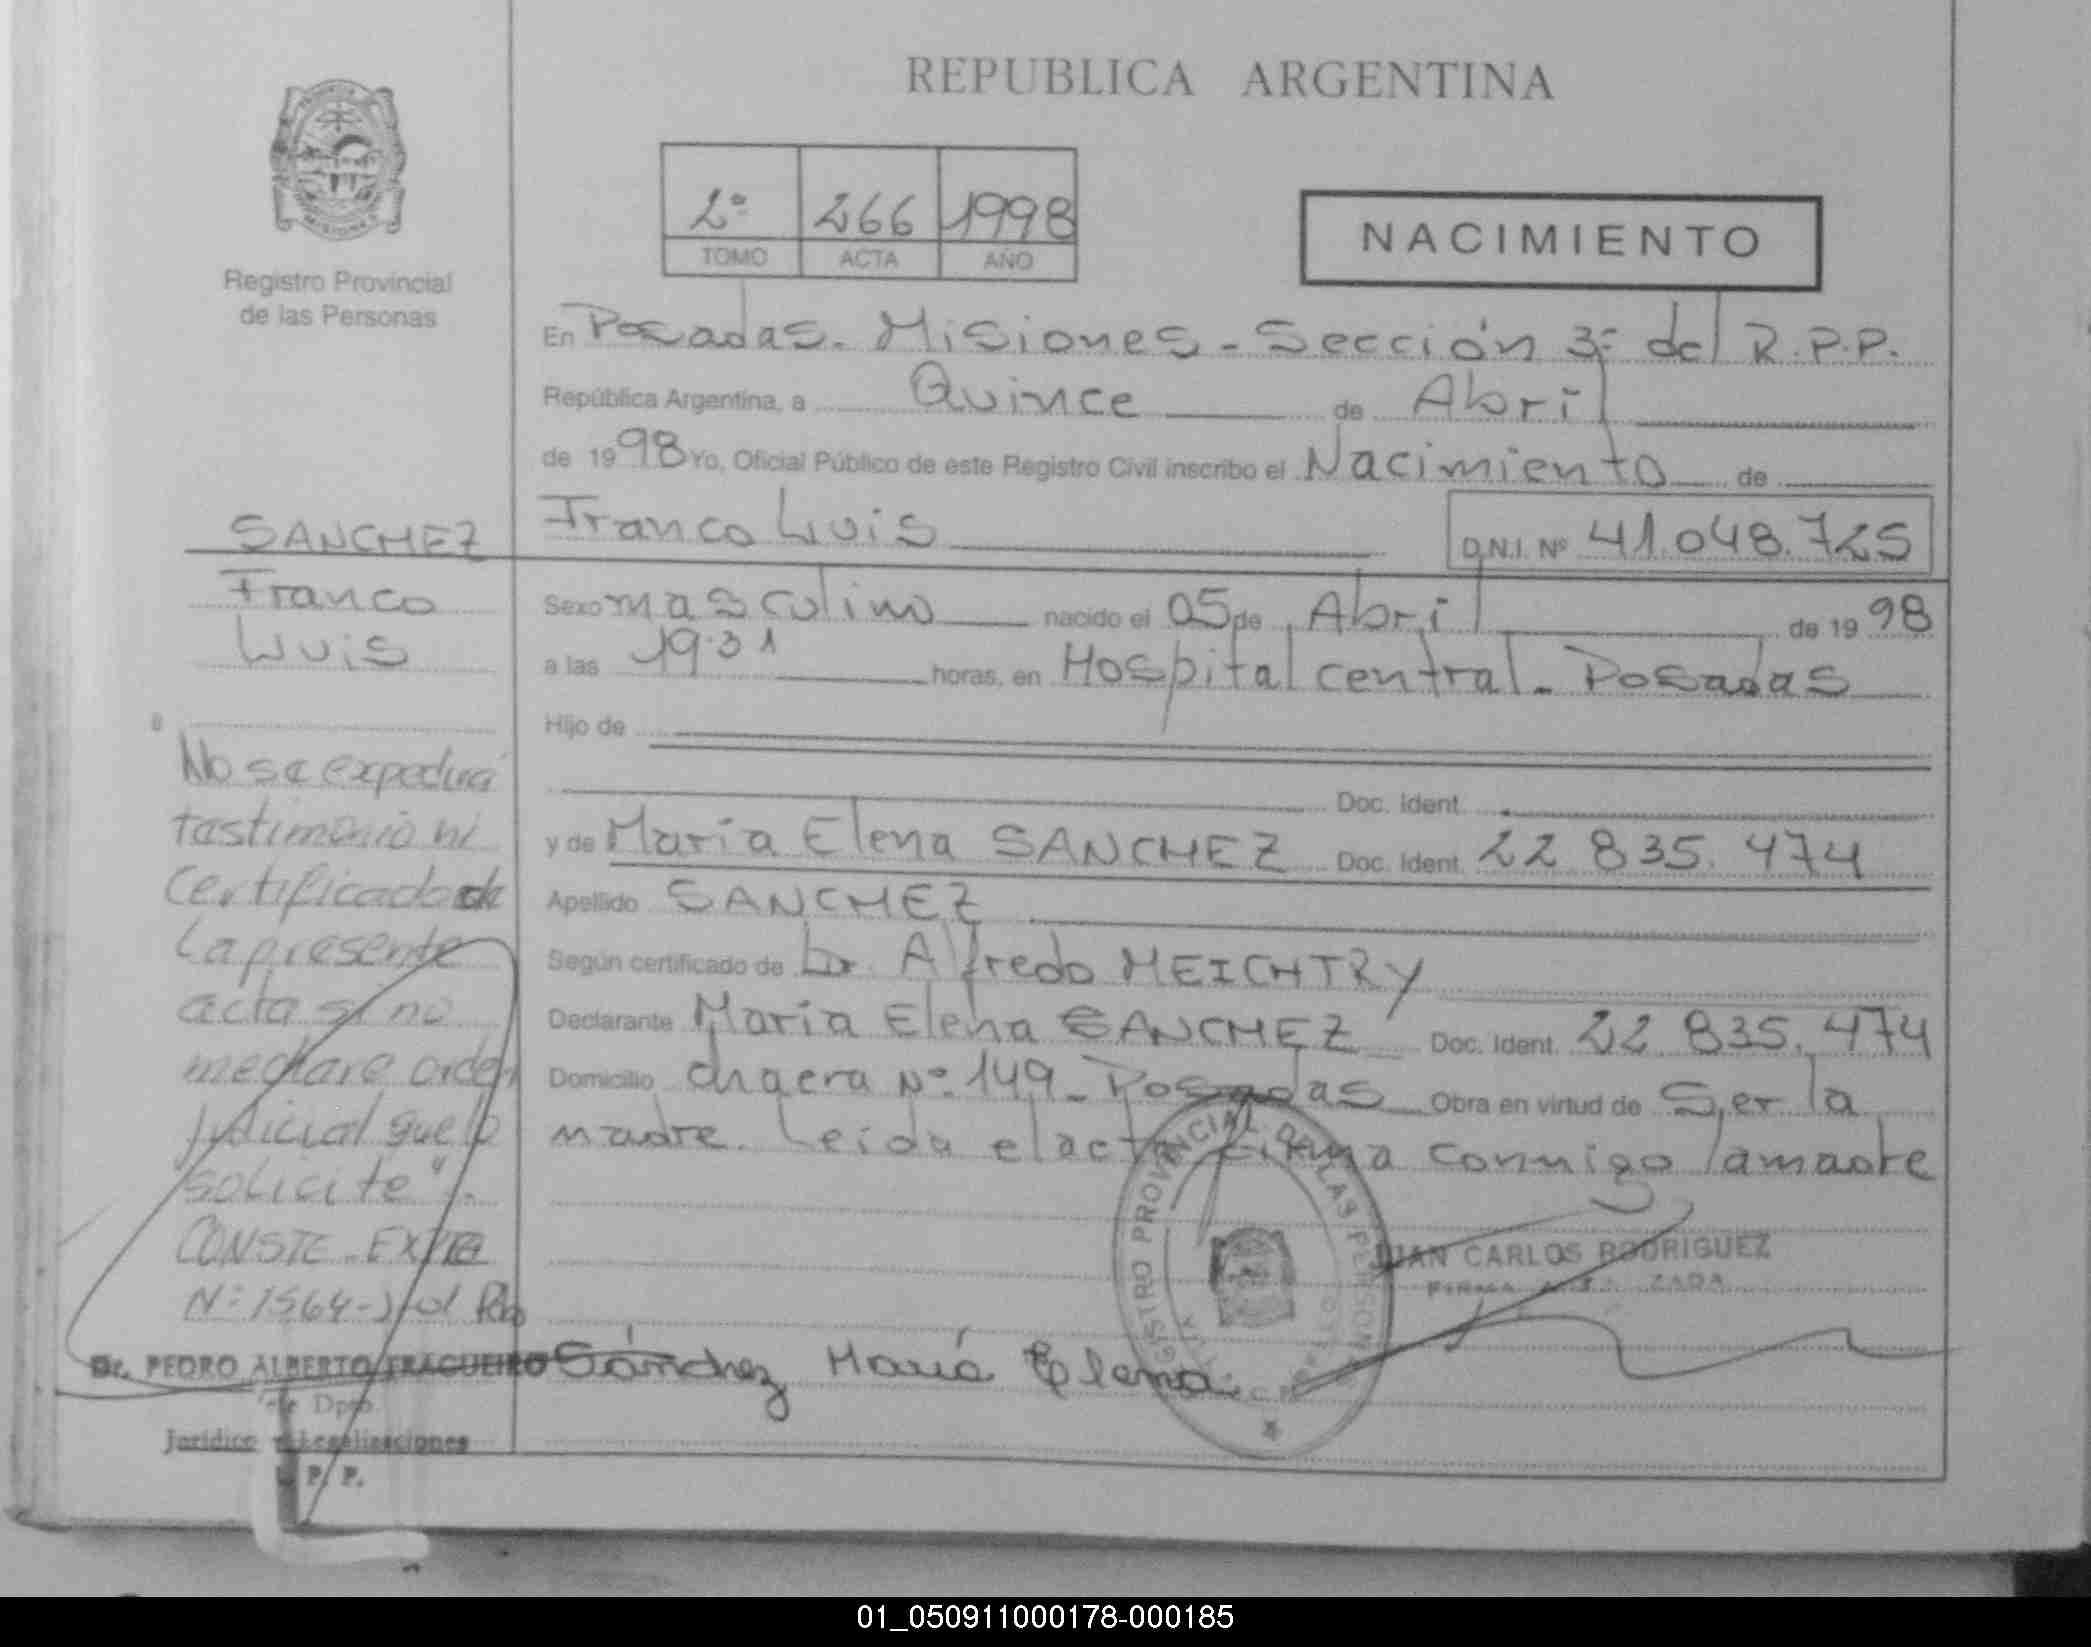 REPUBLICA ARGENTINA
2º 266 1998
TOMO ACTA AÑO
NACIMIENTO
Registro Provincial
de las Personas
En Posadas. Misiones - Sección 3º del R.P.P.
República Argentina, a Quince de Abril
de 1998 Yo, Oficial Público de este Registro Civil inscribo el Nacimiento de
Franco Luis D.N.I. Nº 41.048.725
Sexo masculino nacido el 05 de Abril de 1998
a las 19.31 horas, en Hospital central - Posadas
Hijo de
Doc. Ident.
y de Maria Elena SANCHEZ Doc. Ident. 22 835. 474
Apellido SANCHEZ
Según certificado de Dr. Alfredo MEICHTRY
Declarante Maria Elena SANCHEZ Doc. Ident. 22 835. 474
Domicilio Nº 149 - Posadas Obra en virtud de Ser la
madre. Leida el acta firma conmigo la madre
REGISTRO PROVINCIAL DE LAS PERSONAS
JUAN CARLOS RODRIGUEZ
Sánchez María Elena
SANCHEZ
Franco
Luis
No se expedira
testimonio ni
Certificado de
La presente
acta si no
mediare orden
judicial que lo
solicite".
CONSTE - EXPTE
Nº 1564-
Dr. PEDRO ALBERTO FRAGUEIRO
Dpto.
Jurídico y Legalizaciones
P. P.
01_050911000178-000185